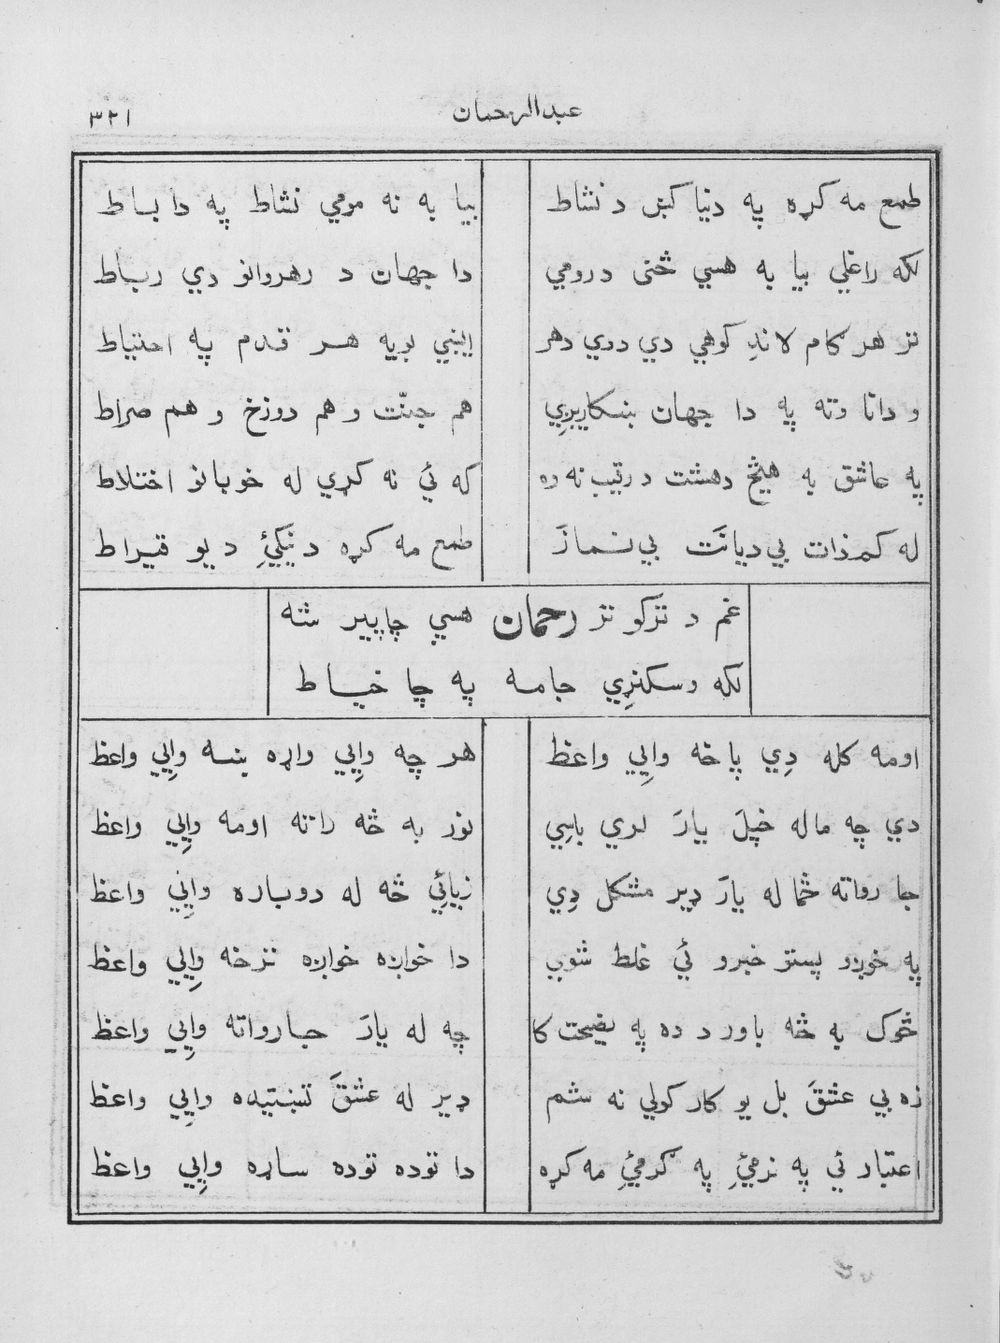 عبدالرحمان
۳۲۱
طمع مه کړه په دنیا کښ د نشاط بیا به نه مومي نشاط په دا بساط
لکه راغلي بیا به هسي څنی درومي دا جهان د رهروانو دي رباط
تر هر کام لاندِ کوهي دي دري دهر ایښي بویه هر قدم په احتیاط
و دانا وته په دا جهان ښکاریږي هم جنّت و هم دوزخ و هم صراط
په عاشق به هیڅ دهشت د رقیب نه وه که ئي نه کړي له خوبانو اختلاط
له کم ذات بي دیانَت بي نمازَ طمع مه کړه د نیکئِ د یو قیراط
غم د ترکو تر رحمان هسي چاپیر شه
لکه وسکنړي جامه په چا خیاط
اومه کله دِي پاخه وایِي واعظ هر چه وایِي واړه ښه وایِي واعظ
دي چه ماله خپلَ یارَ لري باسِي نور به څه راته اومه وایِي واعظ
جا رواته څما له یارَ ډیر مشکل دِي زیائِي څه له دوباره وایِي واعظ
په خوږو پستو خبرو ئي غلط شوي دا خواږه خواږه تر خه وایِي واعظ
څوک به څه باور د ده په نصیحت کا چه له یارَ جارواته وایِي واعظ
زه بي عشقَ بل یو کار کولي نه شم ډیر له عشقَ تښتیده وایِي واعظ
اعتبار ئي په نرمئِ په کرمئِ مه کړه دا توده توده ساړه وایِي واعظ